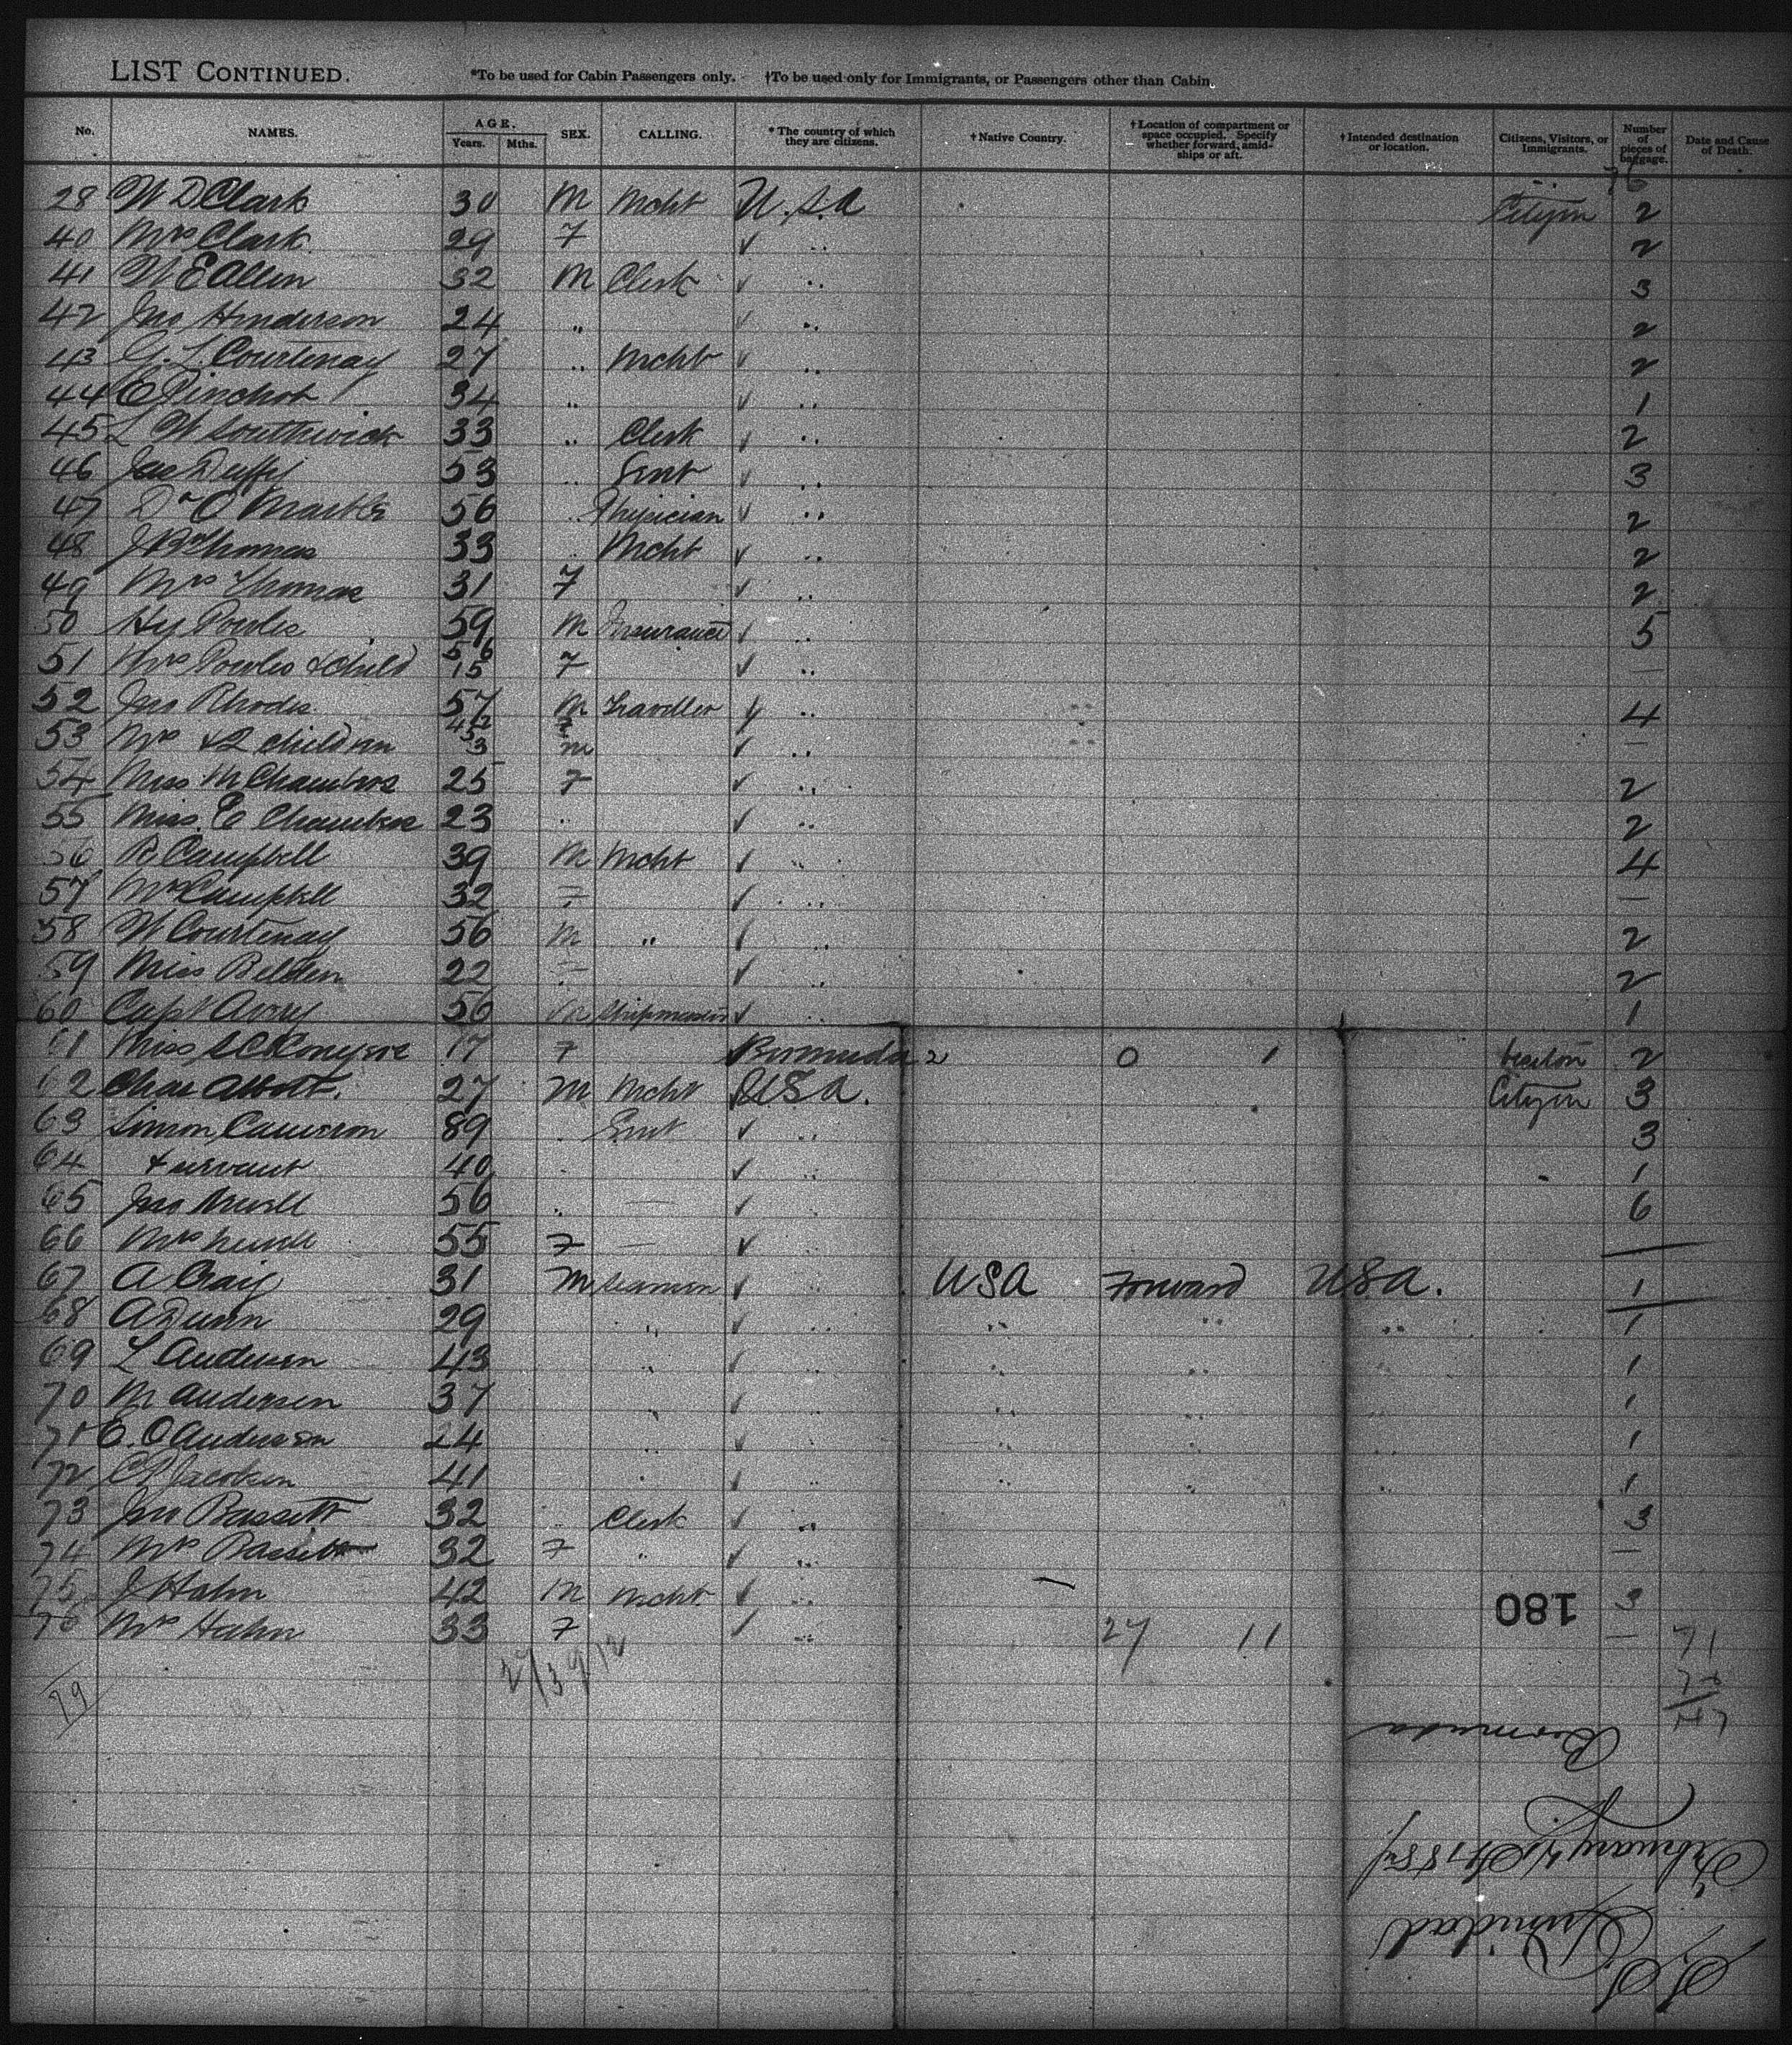 LIST CONTINUED. *To be used for Cabin Passengers only. †To be used only for Immigrants, or Passengers other than Cabin.
No. NAMES. AGE. Years. Mths. SEX. CALLING. * The country of which they are citizens. † Native Country. † Location of compartment or space occupied. Specify whether forward, amidships or aft. † Intended destination or location. Citizens, Visitors, or Immigrants. Number of pieces of baggage. Date and Cause of Death.
28 W D Clark 30 M Mcht U.S.A Citizen 2
40 Mrs Clark 29 F ✓ .. 2
41 W E Allen 32 M Clerk ✓ .. 3
42 Jno Henderson 24 .. ✓ .. 2
43 G. L. Courtenay 27 .. Mcht ✓ .. 2
44 E Pinchot 34 .. ✓ .. 1
45 L W Southwick 33 .. Clerk ✓ .. 2
46 Jas Duffy 53 .. Gent ✓ .. 3
47 Dr O 56 .. Physician ✓ .. 2
48 J B Thomas 33 . Mcht ✓ .. 2
49 Mrs Thomas 31 F ✓ .. 2
50 Hy Powles 59 M Insurance ✓ .. 5
51 Mrs Powles & Child 56 15 F ✓ .. —
52 Jno Rhodes 57 M Traveller ✓ .. 4
53 Mrs & 2 children F M ✓ .. —
54 Miss M Chambers 25 F ✓ .. 2
55 Miss E Chambers 23 .. ✓ .. 2
56 R Campbell 39 M Mcht ✓ .. 4
57 Mrs Campbell 32 F ✓ .. —
58 W Courtenay 56 M .. ✓ .. 2
59 Miss Belden 22 F ✓ .. 2
60 Capt Avery 56 M Shipmaster ✓ .. 1
61 Miss Conyers 17 F Bermuda 2 0 1 2
62 Chas Abbott. 27 M Mcht ✓ USA. Citizen 3
63 Simon Cameron 89 . Gent ✓ .. 3
64 & servant 40 . ✓ .. 1
65 Jno Newell 56 .. — ✓ .. 6
66 Mrs Newell 55 F — ✓ —
67 A Craig 31 M Seaman ✓ USA Forward USA. 1
68 A Dunn 29 .. ✓ .. .. .. .. 1
69 L Andersen 43 .. ✓ .. .. .. .. 1
70 M Andersen 37 .. ✓ .. .. .. .. 1
71 E. O Anderson 24 .. ✓ .. .. .. .. 1
72 C P Jacobsen 41 . ✓ .. .. .. .. 1
73 Jno Bassett 32 .. Clerk ✓ .. 3
74 Mrs Bassett 32 F .. ✓ .. —
75 J Hahn 42 M Mcht. ✓ .. 3
76 Mrs Hahn 33 F ✓ .. 27 11 —
180
71
76
147
79
Bermuda
February 4th 188
SS Trinidad